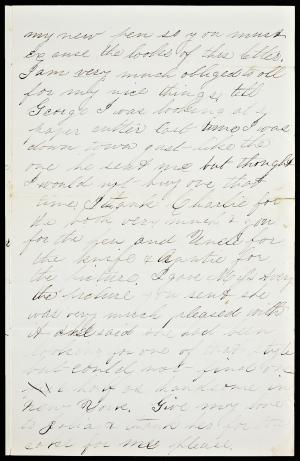 my new pen so you must
excuse the looks of this letter.
I am very much obliged to all
for my nice things, tell
George I was looking at a
paper cutter last time I was
down town just like the
one he sent me but thought
I would not buy one that
time, I thank Charlie for
the both very much & you
for the pen and Uncle for
the knife & Auntie for
the picture. I gave Miss Avery
the picture you sent, she
was very much pleased with
it and said she had been
looking for one of that style
but could not find
half as handsome in
New York. Give my love
to Julia & thank her for
for me please.